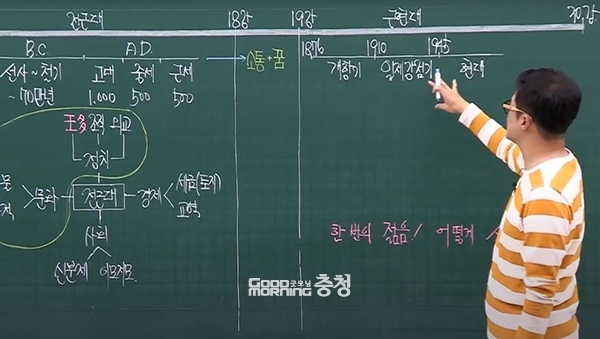 전근대 18강 19강 근현대 20강
B.C. A.D. 소통+꿈 1876 1910 1945
선사~철기 고대 중세 근세 개항기 일제강점기 현대
~70만년 1,000 500 500
조직 외교
정치
문화 전근대 경제 세금(토지)
교역
사회
신분제
한 번의 젊음! 어떻게
GOOD MORNING 굿모닝 충청